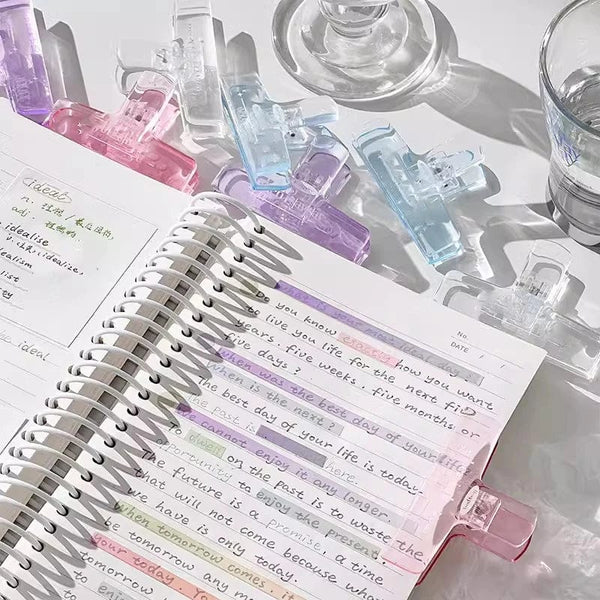 (ideal)
n. 理想
adj.
idealise
v. idealize.
idealism
list
ty
ideal
No.
DATE / /
What is your most ideal day?
Do you know exactly how you want
to live you life for the next
years, five weeks, five months or
five days?
When was the best day of your life
When is the next?
The best day of your life is today.
The past is here.
You cannot enjoy it any longer.
To dwell on the past is to waste the
opportunity to enjoy the present.
The future is a promise, a time
that will not come because what
we have is only today.
When tomorrow comes, it
be tomorrow any more
your today. You
tomorrow
to enjoy